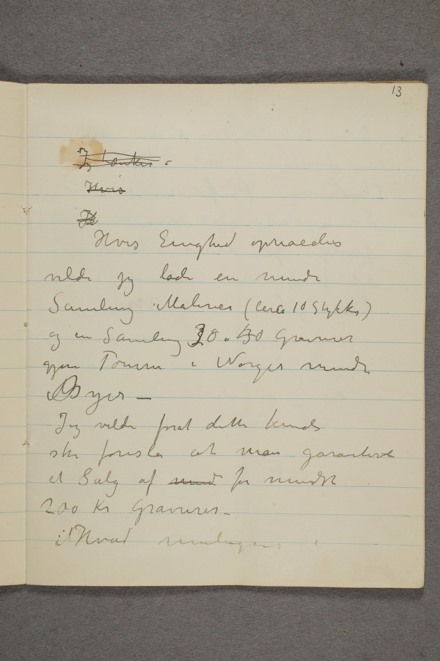 13
Jeg tænker i
Hvis
Je
Hvis Enighed opnaaedes
vilde jeg lade en mindre
Samling Malerier (Circa 10 Stykker)
og en Samling 30 a 40 Gravurer
gjøre Tourne i Norges mindre
Byer –
Jeg vilde forat dette kunde
ske foreslaa at man garanterede
et Salg af for mindst
200 Kr Gravurer –
Hvad